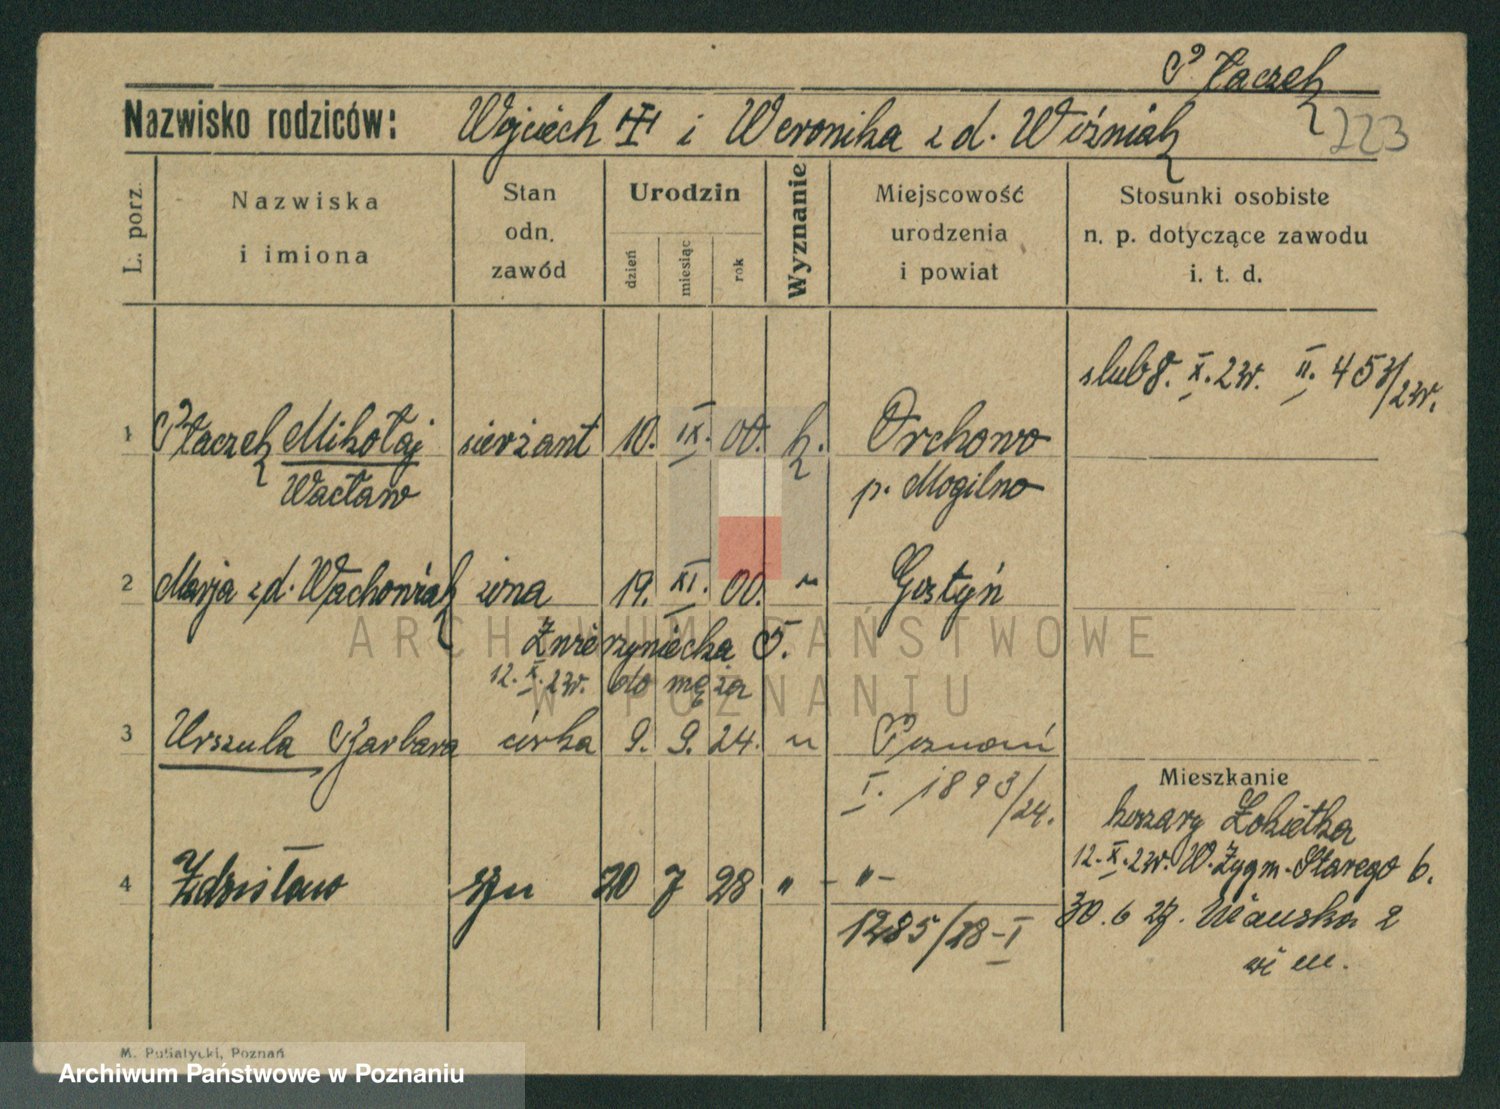 Ptaczek
Nazwisko rodziców: Wojciech i Weronika z d. Wiśniak 223
L. porz. Nazwiska i imiona Stan odn. zawód Urodzin dzień miesiąc rok Wyznanie Miejscowość urodzenia i powiat Stosunki osobiste n. p. dotyczące zawodu i. t. d.
slub 8. X. 23r. II. 453/23r.
1 Ptaczek Mikołaj sierżant 10. IX. 00. k. Orchowo
Wacław p. Mogilno
2 Marja z d. Wachowiak żona 19. XI. 00. " Gostyń
Zwierzyniecka 5.
12. X. 23r. do męża
3 Urszula Barbara córka 9. 9. 24. " Poznań
I. 1893/24.
Mieszkanie
koszary
12. X. 23r. W. Zygm. Starego 6.
4 Zdzisław syn 20 7 28 " - " -
30. 6 27. 2
1285/28 - I
w m.
M. Putiatycki, Poznań
ARCHIWUM PAŃSTWOWE
W POZNANIU
Archiwum Państwowe w Poznaniu